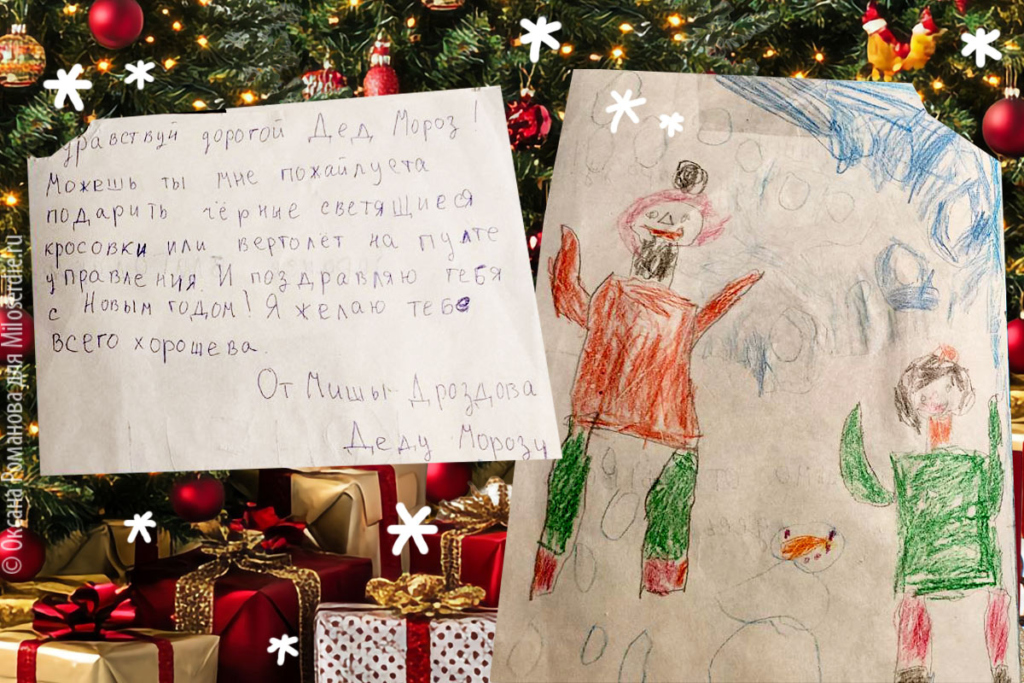 дравствуй дорогой Дед Мороз!
Можешь ты мне пожайлуета
подарить чёрные светящиеся
кросовки или вертолёт на пулте
управления. И поздравляю тебя
с Новым годом! Я желаю тебе
всего хорошева.
От Мишы Дроздова
Деду Морозу
© Оксана Романова для Miloserdie.ru